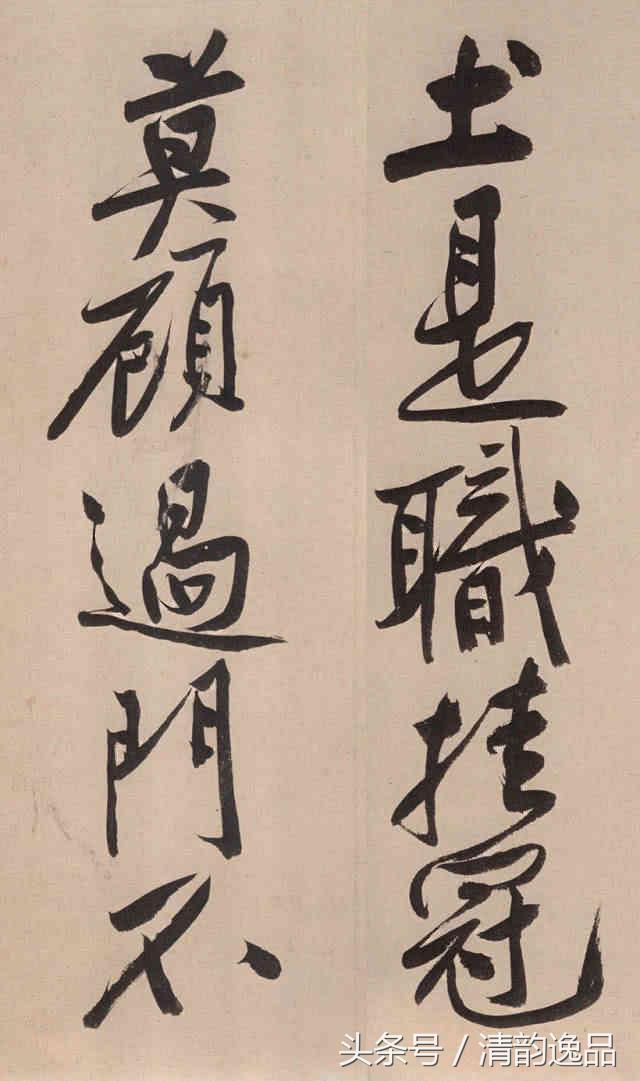 土是職挂冠
莫顧過門不
头条号 / 清韵逸品